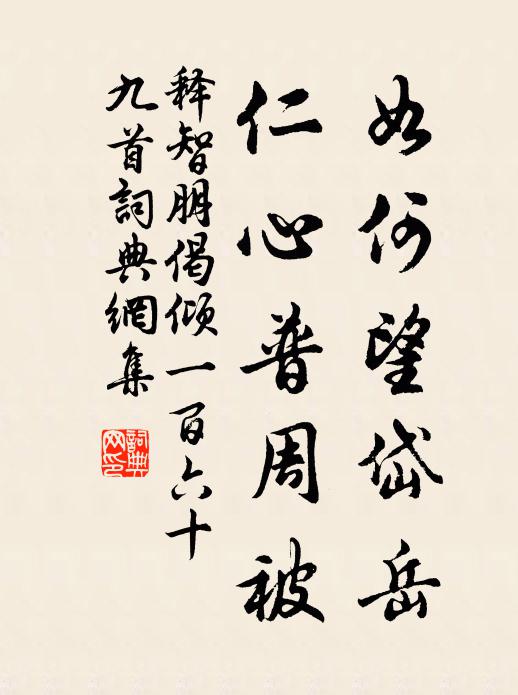 如何望岱岳
仁心普周被
释智朋偈倾一百六十
九首詞典網集
詞典
网印